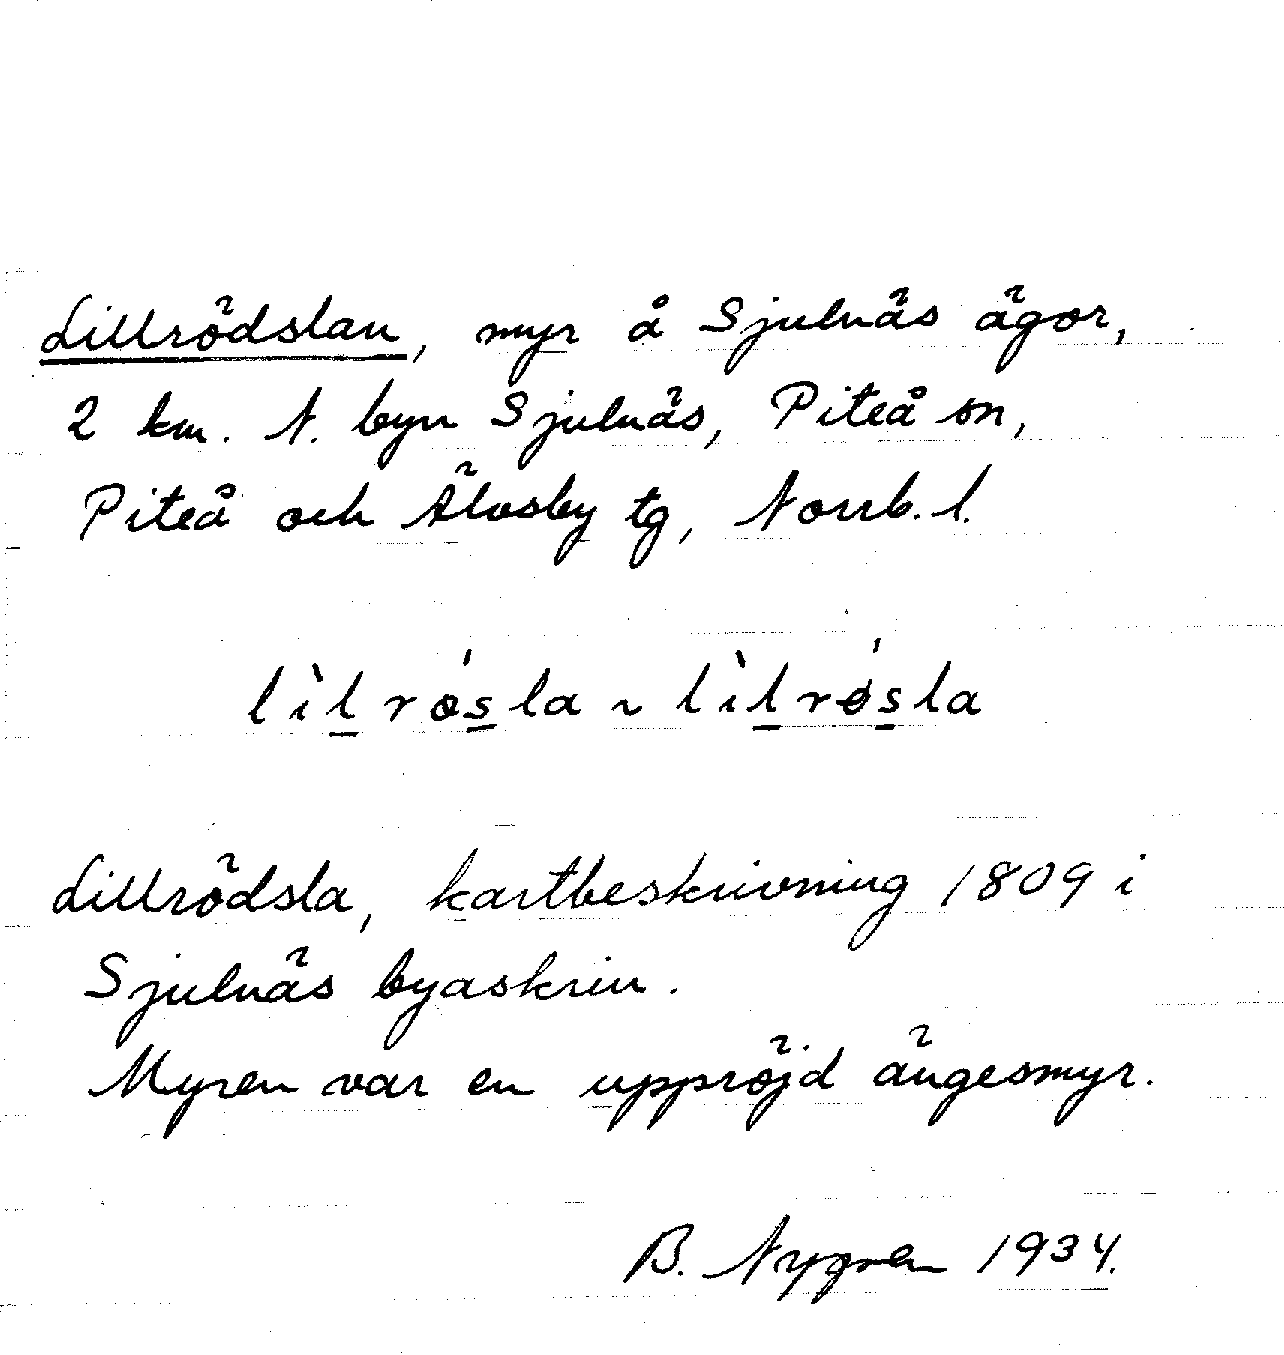 Lillrödslan, myr å Sjulnäs ägor,
2 km. N. byn Sjulnäs, Piteå sn,
Piteå och Älvsby tg, Norrb. l.
lìl̠rós̠la ~ lìl̠rǿs̠la
Lillrödsla, kartbeskrivning 1809 i
Sjulnäs byaskrin.
Myren var en uppröjd ängesmyr.
B. Nygren 1934.